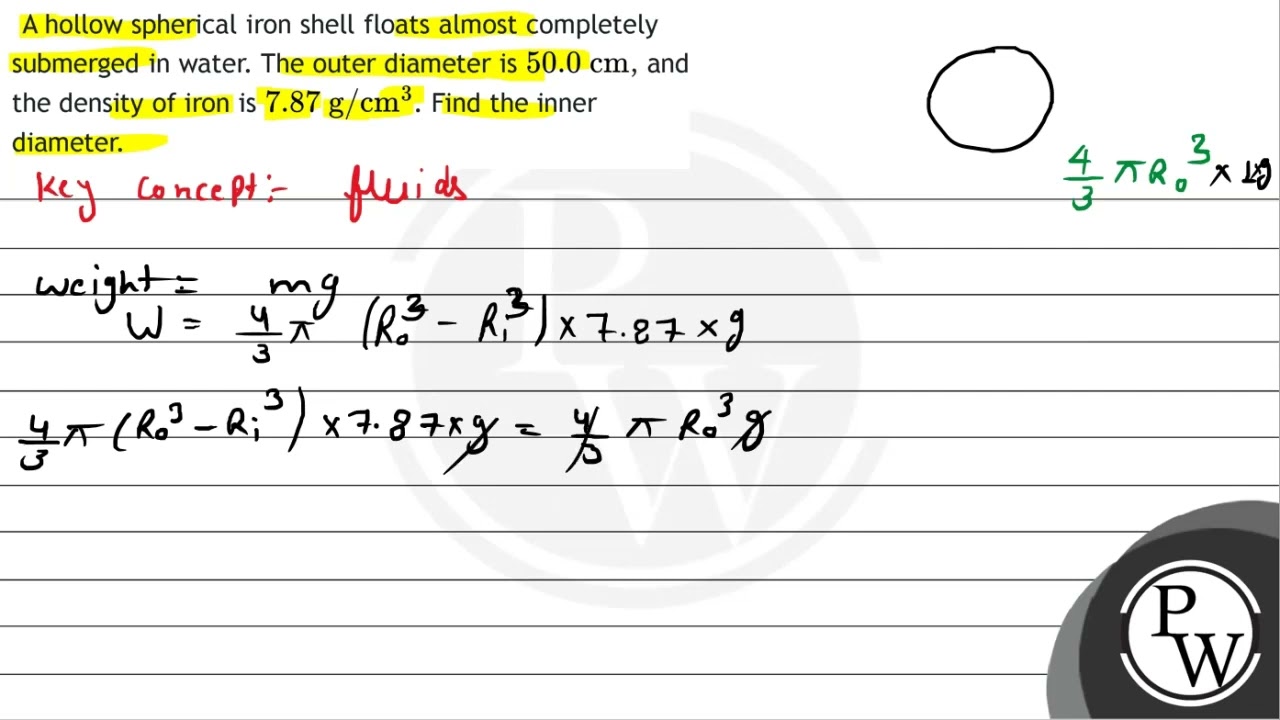 A hollow spherical iron shell floats almost completely
submerged in water. The outer diameter is 50.0 cm, and
the density of iron is 7.87 g/cm³. Find the inner
diameter.
4/3 π R₀³ × 1×g
Key concept:- fluids
weight = mg
W = 4/3 π (R₀³ - Rᵢ³) × 7.87 × g
4/3 π (R₀³ - Rᵢ³) × 7.87 × g = 4/3 π R₀³ g
P
W
PW